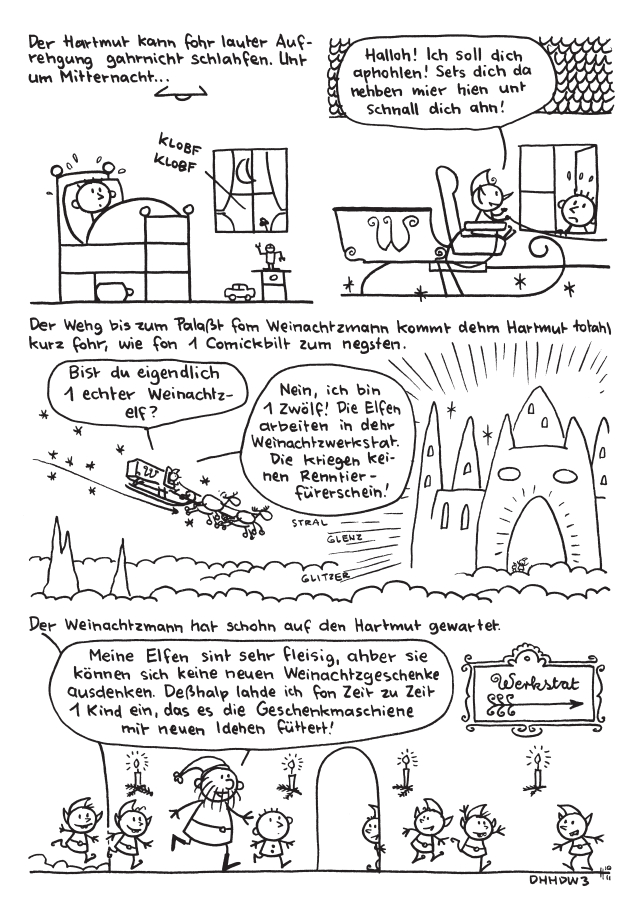 Der Hartmut kann fohr lauter Auf-
rehgung gahrnicht schlahfen. Unt
um Mitternacht...
KLOBF
KLOBF
Halloh! Ich soll dich
aphohlen! Sets dich da
nehben mier hien unt
schnall dich ahn!
W
Der Wehg bis zum Palaßt fom Weinachtzmann kommt dehm Hartmut totahl
kurz fohr, wie fon 1 Comickbilt zum negsten.
Bist du eigendlich
1 echter Weinachtz-
elf?
Nein, ich bin
1 Zwölf! Die Elfen
arbeiten in dehr
Weinachtzwerkstat.
Die kriegen kei-
nen Renntier-
fürerschein!
W
STRAL
GLENZ
GLITZER
Der Weinachtzmann hat schohn auf den Hartmut gewartet.
Meine Elfen sint sehr fleisig, ahber sie
können sich keine neuen Weinachtzgeschenke
ausdenken. Deßhalp lahde ich fon Zeit zu Zeit
1 Kind ein, das es die Geschenkmaschiene
mit neuen Idehen füttert!
Werkstat
DHHDW3